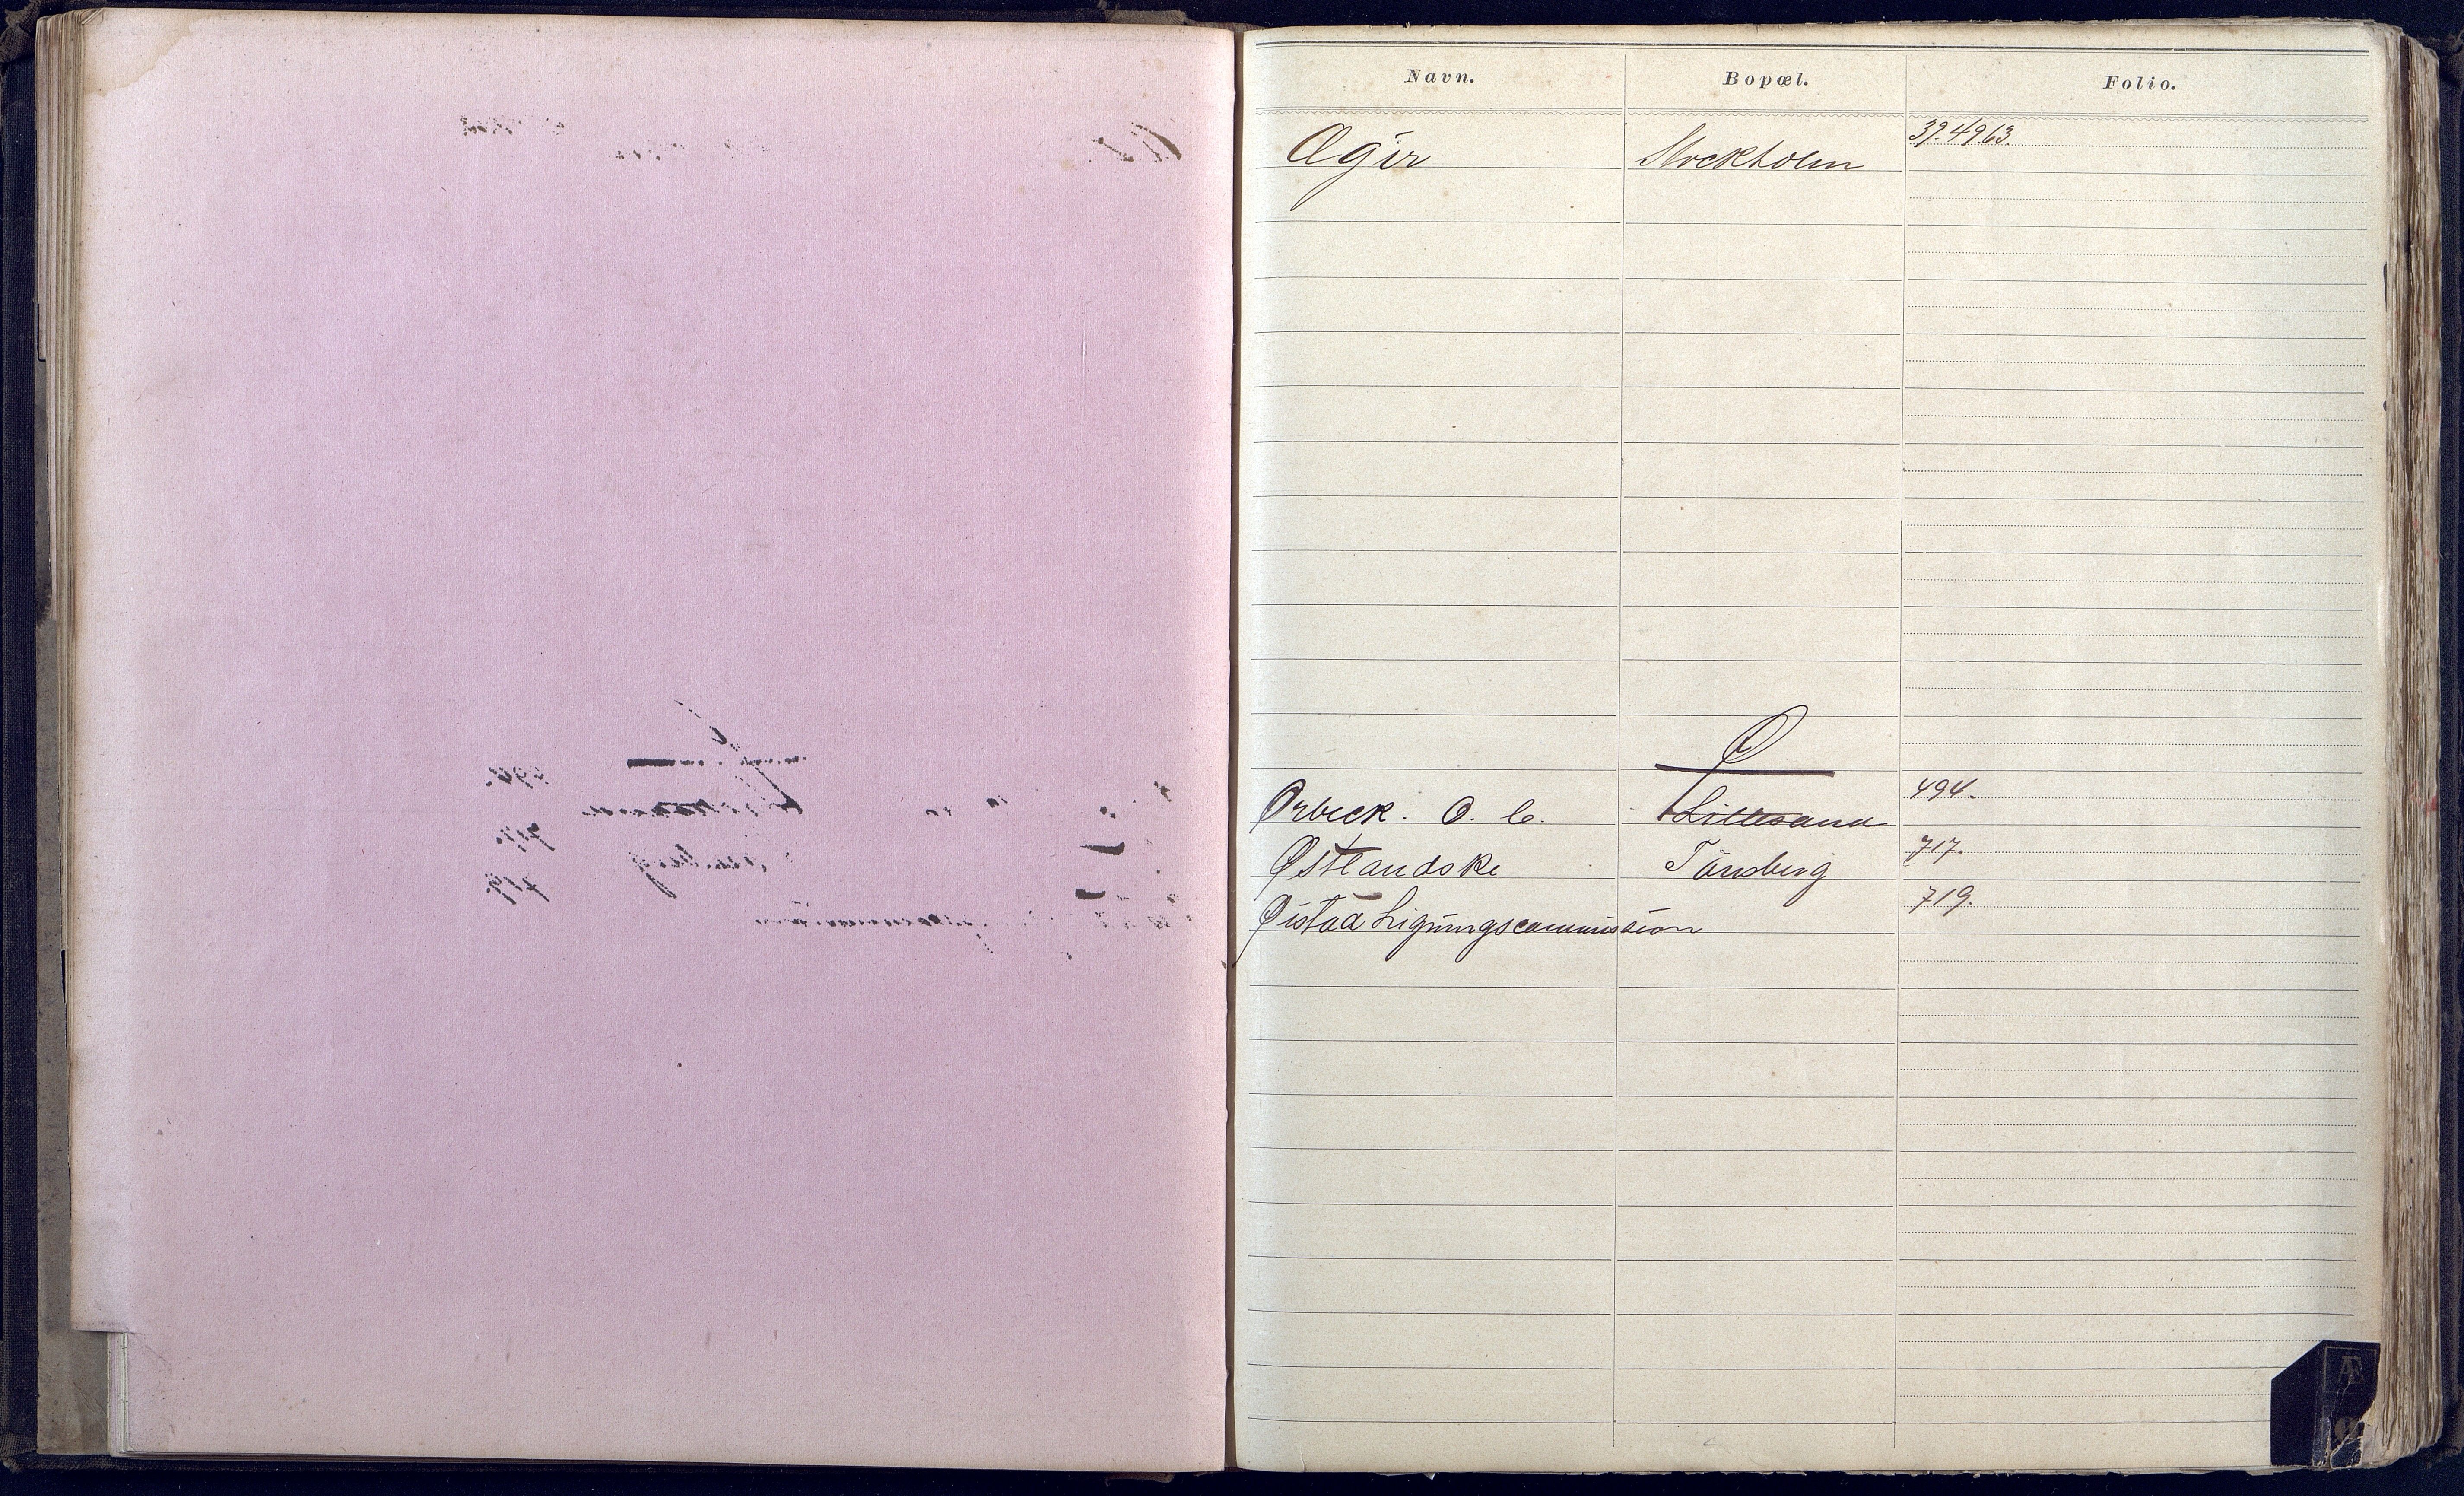 Navn. Bopæl. Folio.
Ægir Stockholm 39.49.63.
Ø
Ørbeck. O. C. Lillesand 494.
Østlandske Tönsberg 717.
Øistad Ligningscommission 719.
Æ